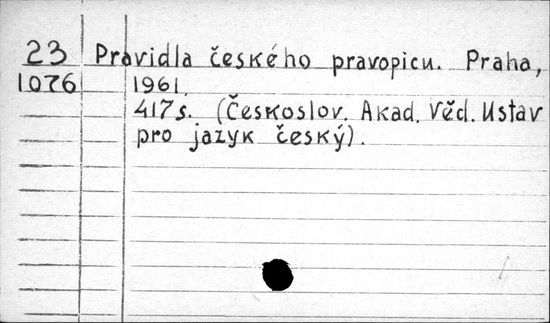 23 Pravidla českého pravopicu. Praha,
1076 1961.
417s. (Českoslov. Akad. Věd. Ustav
pro jazyk český).